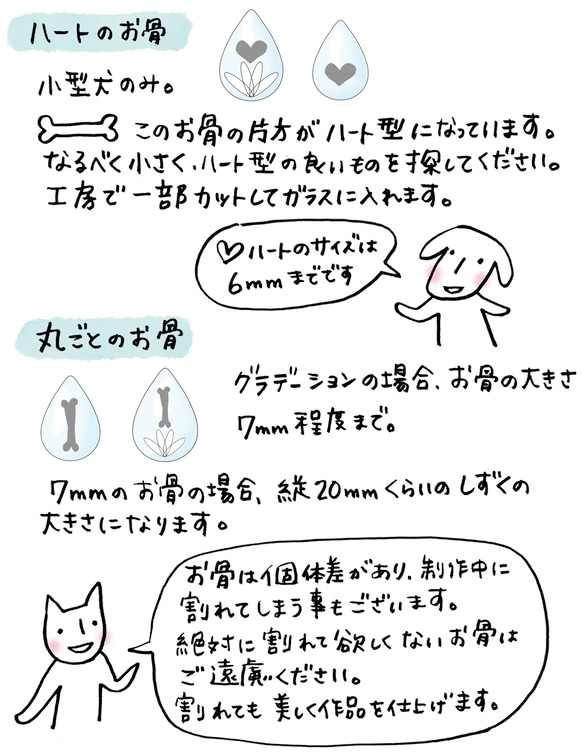 ハートのお骨
小型犬のみ。
このお骨の片方がハート型になっています。
なるべく小さく、ハート型の良いものを探してください。
工房で一部カットしてガラスに入れます。
♡ハートのサイズは
6mmまでです
丸ごとのお骨
グラデーションの場合、お骨の大きさ
7mm程度まで。
7mmのお骨の場合、縦20mmくらいのしずくの
大きさになります。
お骨は個体差があり、制作中に
割れてしまう事もございます。
絶対に割れて欲しくないお骨は
ご遠慮ください。
割れても美しく作品を仕上げます。